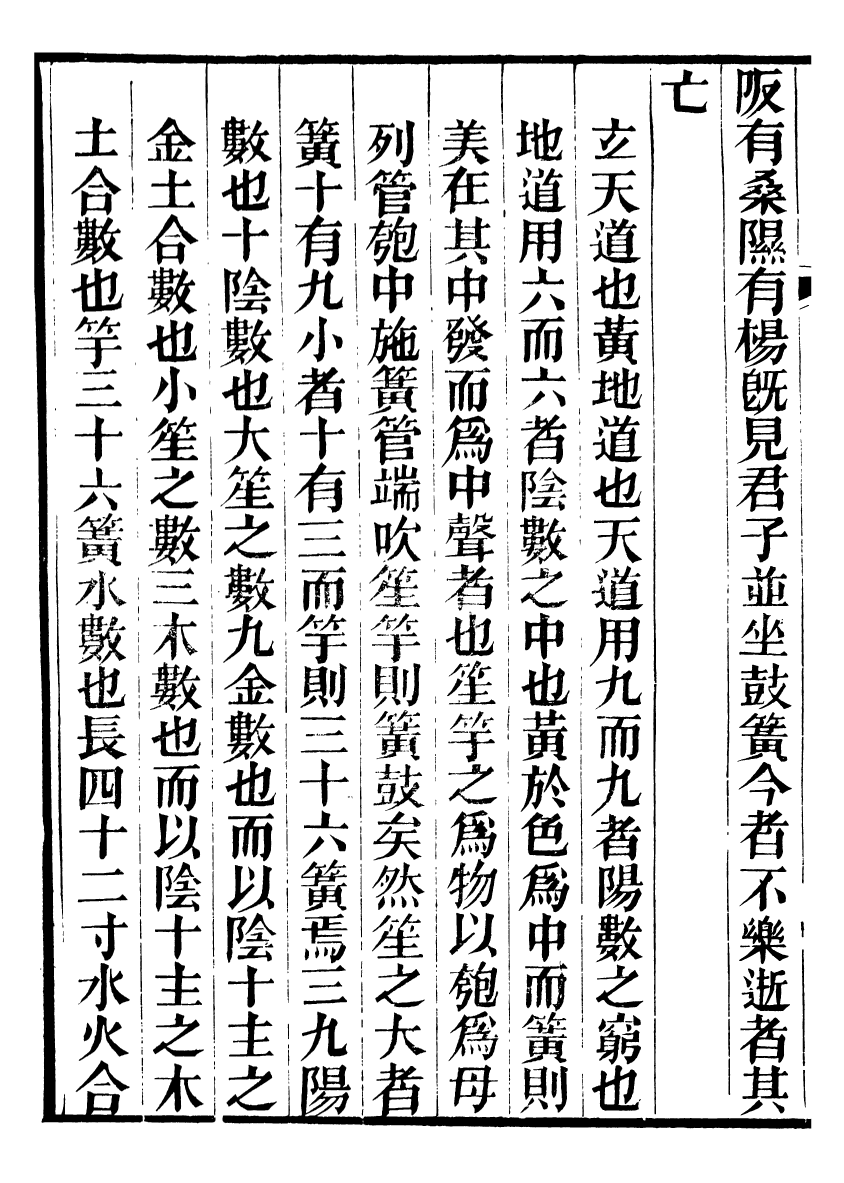 阪有桑隰有楊旣見君子並坐鼓簧今者不樂逝者其
亡
玄天道也黃地道也天道用九而九者陽數之窮也
地道用六而六者陰數之中也黃於色爲中而簧則
美在其中發而爲中聲者也笙竽之爲物以匏爲母
列管匏中施簧管端吹笙竽則簧鼓矣然笙之大者
簧十有九小者十有三而竽則三十六簧焉三九陽
數也十陰數也大笙之數九金數也而以陰十主之
金土合數也小笙之數三木數也而以陰十主之木
土合數也竽三十六簧水數也長四十二寸水火合